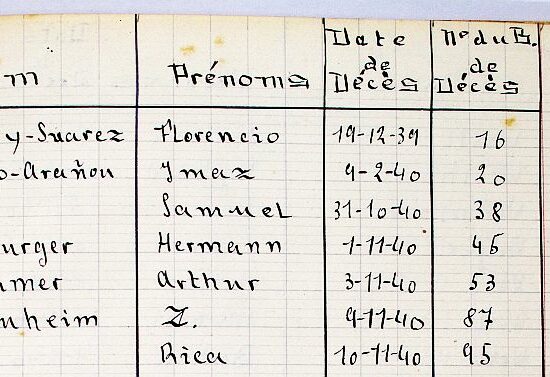 Date N° du B.
m Prénoms de de
Décès Décès
y-Suarez Florencio 19-12-39 16
o-Arañou Ymaz 9-2-40 20
Samuel 31-10-40 38
urger Hermann 1-11-40 45
mer Arthur 3-11-40 53
nheim Z. 9-11-40 87
Rica 10-11-40 95